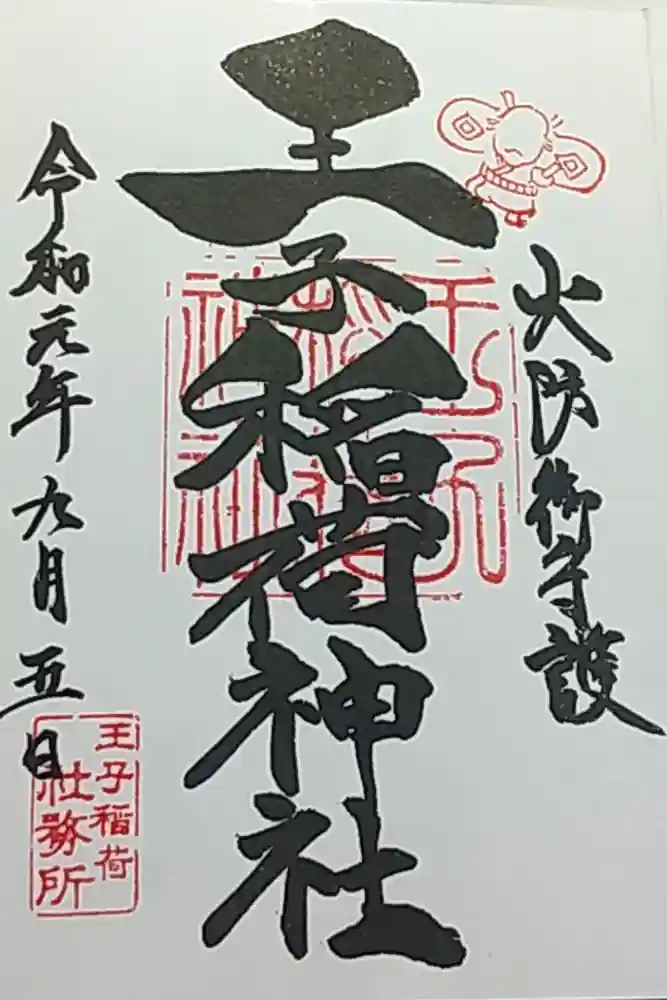 火防御守護
王子稲荷神社
令和元年九月五日
王子稲荷
社務所